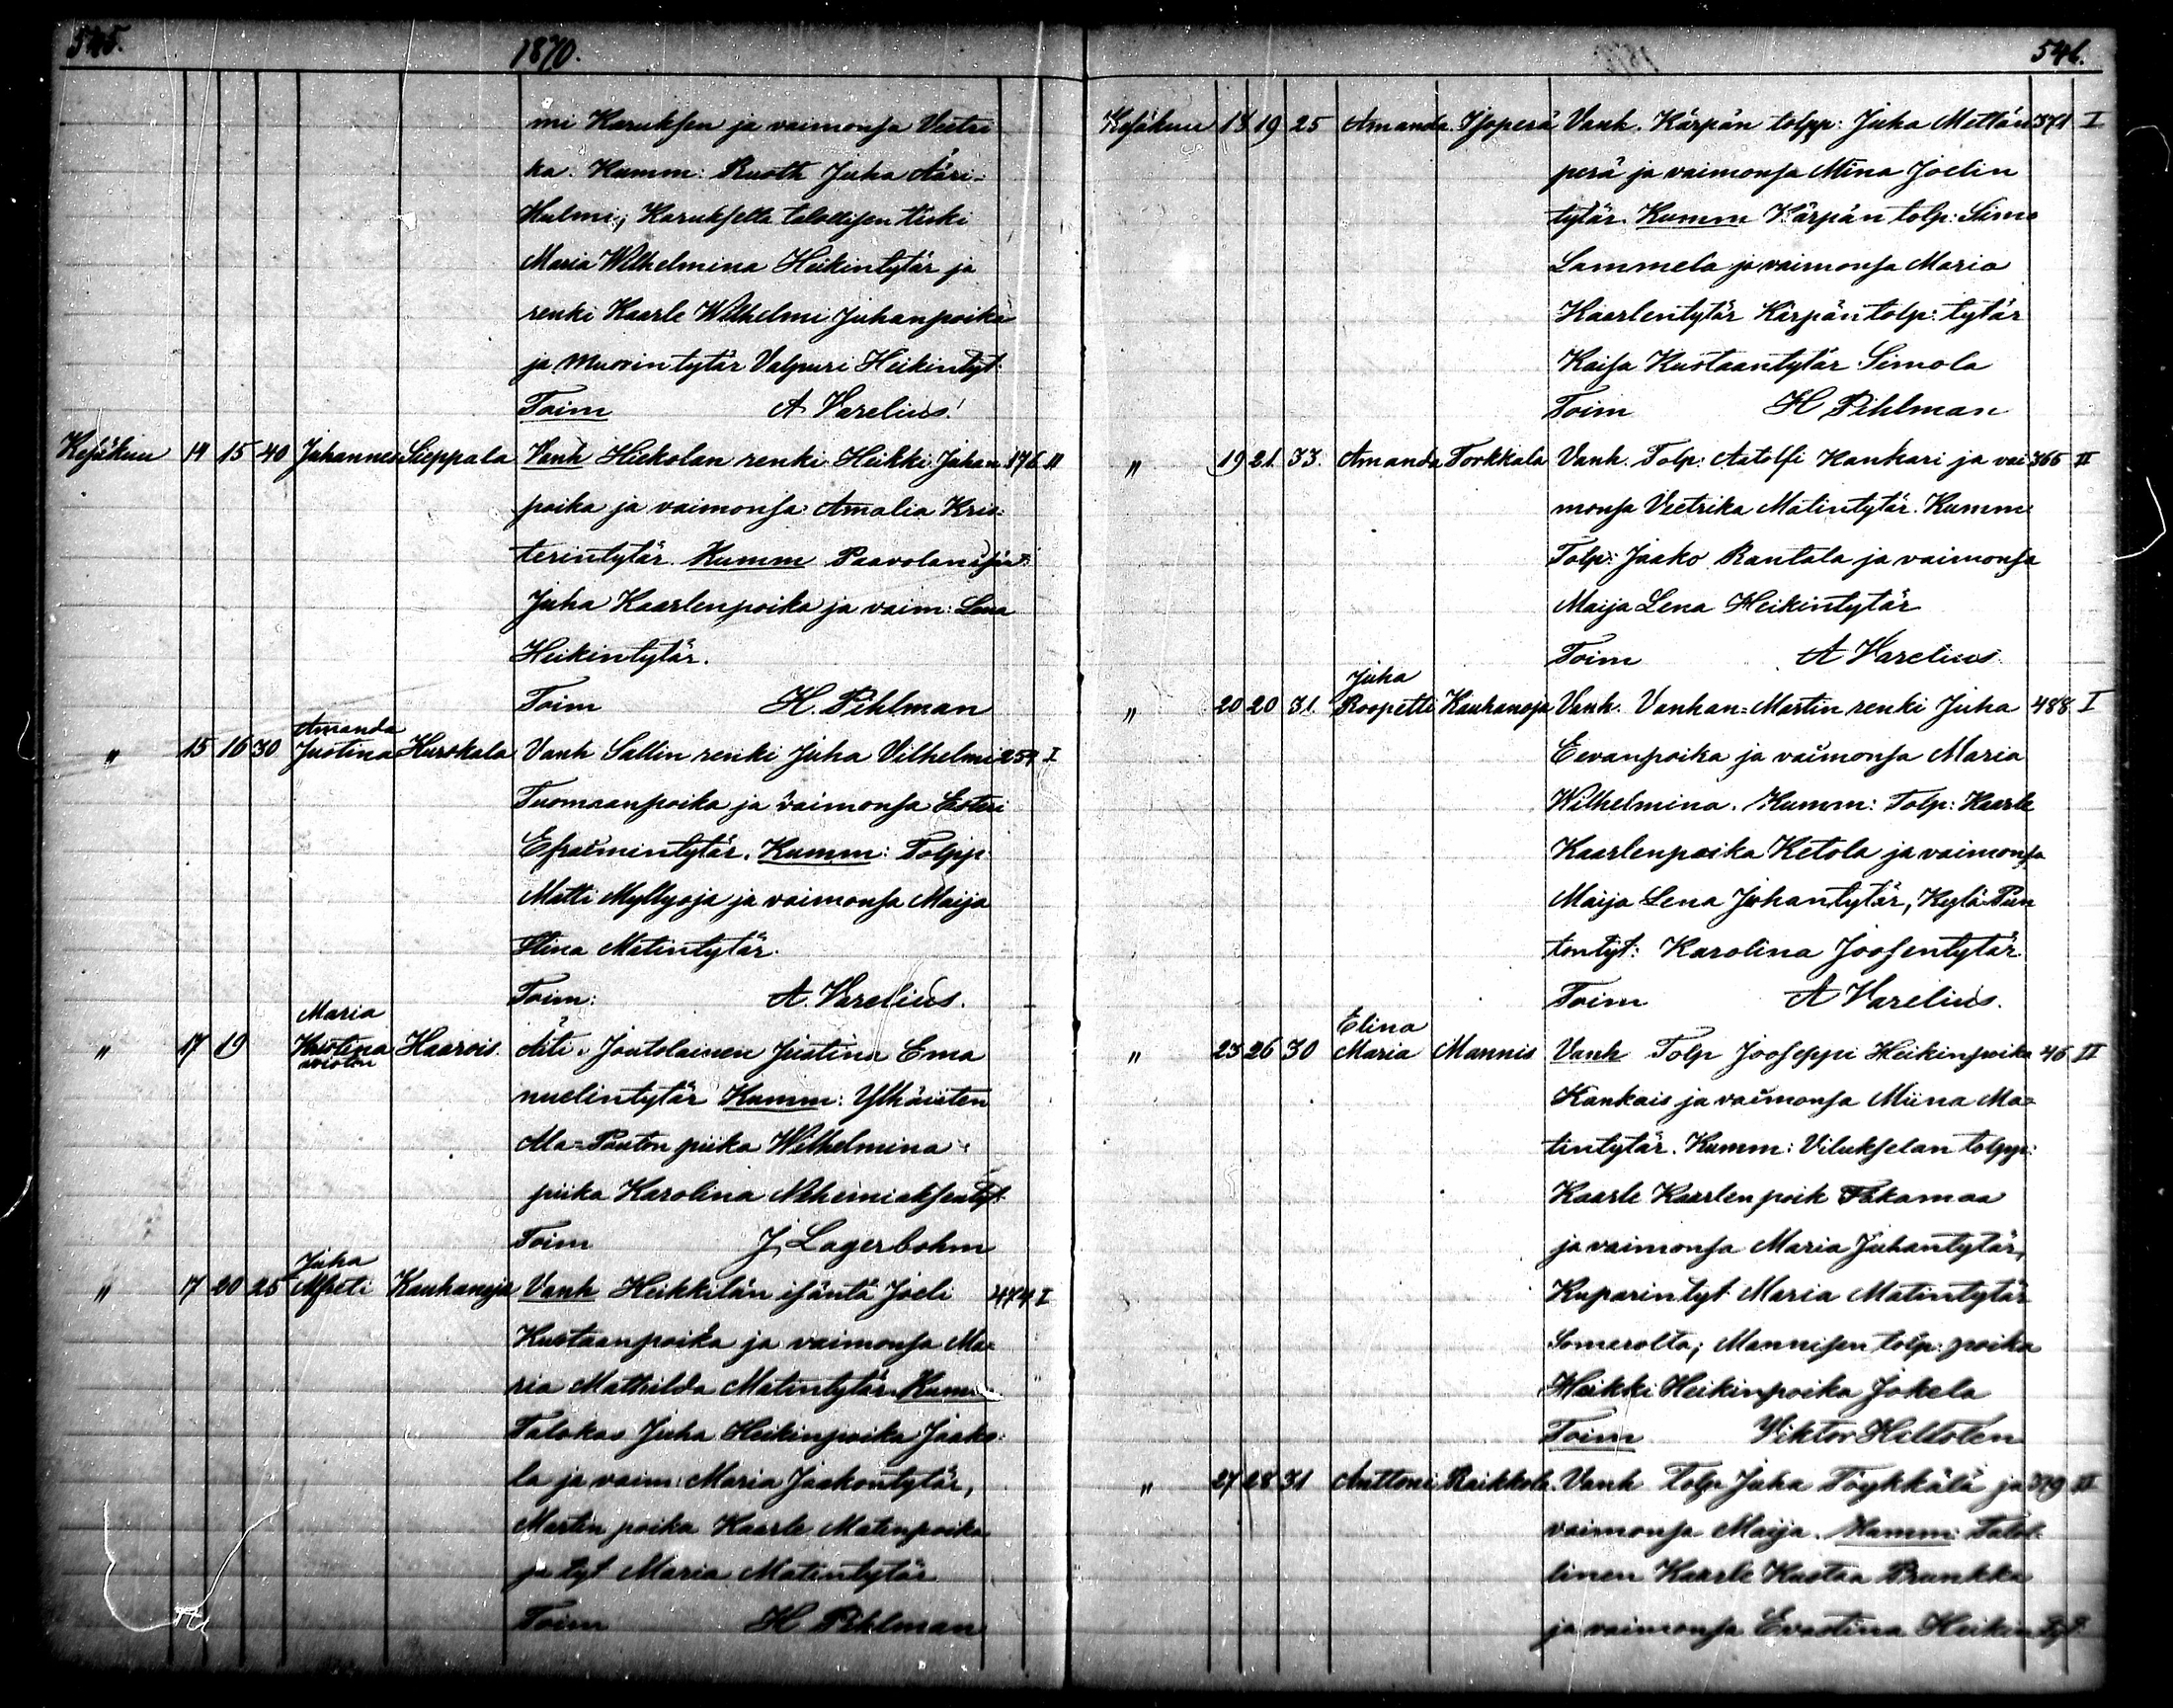 545.
1870.
mi Karuksen ja vaimonsa Veetri
ka. Kumm: Ruoth Juha Ääri-
Hulmi; Karuksella talollisen
Maria Wilhelmina Heikintytär ja
renki Kaarle Wilhelmi Juhanpoika
ja Muorintytär Valpuri Heikintyt.
Toim A Varelius.
Kesäkuu 14 15 40 Johannes Sieppala Vanh Hiekolan renki Heikki Juhan 176 II
poika ja vaimonsa Amalia Kris-
terintytär. Kumm Paavolan
Juha Kaarlenpoika ja vaim: Lena
Heikintytär.
Toim H. Pihlman
Amanda
" 15 16 30 Justina Kurskala Vanh Sallin renki Juha Vilhelmi 254 I
Tuomaanpoika ja vaimonsa Esteri
Efraimintytär. Kumm: Tolpp
Matti Myllyoja ja vaimonsa Maija
Stina Matintytär.
Toim: A. Varelius.
Maria
" 17 19 Kristina Haarois. Äiti: Joutolainen Justina Ema
avioton
nuelintytär Kumm: Ylhäisten
Ala-Pouton piika Wilhelmina
piika Karolina Neheimiaksentyt.
Toim J, Lagerbohm
Juha
" 17 20 25 Alfreti Kauhanoja Vanh Heikkilän isäntä Joeli 474 I
Kustaanpoika ja vaimonsa Ma-
ria Mathilda Matintytär. Kumm
Talokas Juha Heikinpoika Jaako-
la ja vaim: Maria Jaakontytär,
Martin poika Kaarle Matinpoika
ja tyt Maria Matintytär
Toim H Pihlman
546.
Kesäkuu 18 19 25 Amanda Isoperä Vanh. Kärpän tolpp: Juha Mettän 371 I
perä ja vaimonsa Mina Joelin
tytär. Kumm Kärpän tolp: Simo
Lammela ja vaimonsa Maria
Kaarlentytär Kärpän tolp: tytär
Kaisa Kustaantytär Simola
Toim H Pihlman
" 19 21 33. Amanda Torkkala Vanh. Tolp: Aatolfi Kankari ja vai 366 II
monsa Veetrika Matintytär. Kumm
Tolp: Jaako Rantala ja vaimonsa
Maija Lena Heikintytär
Toim A Varelius.
Juha
" 20 20 31. Roopetti Kauhanoja Vanh. Vanhan-Martin renki Juha 488 I
Eevanpoika ja vaimonsa Maria
Wilhelmina. Kumm: Tolp: Kaarle
Kaarlenpoika Ketola ja vaimonsa
Maija Lena Johantytär, Kylä-Pun
tontyt: Karolina Joosentytär
Toim A Varelius.
Elina
" 23 26 30 Maria Mannis Vanh Tolp Jooseppi Heikinpoika 46 II
Kankais ja vaimonsa Miina Ma-
tintytär. Kumm: Vilukselan tolpp:
Kaarle Kaarlenpoik Takamaa
ja vaimonsa Maria Juhantytär,
Kuparintyt Maria Matintytär
Somerolta; Mannisen tolp: poika
Heikki Heikinpoika Jokela
Toim Viktor Helldten
" 27 28 31 Anttoni Raikkola. Vanh Tolp Juha Töykkälä ja 379 II
vaimonsa Maija. Kumm: Talol-
linen Kaarle Kustaa Prunkka
ja vaimonsa Evastina Heikin tyt